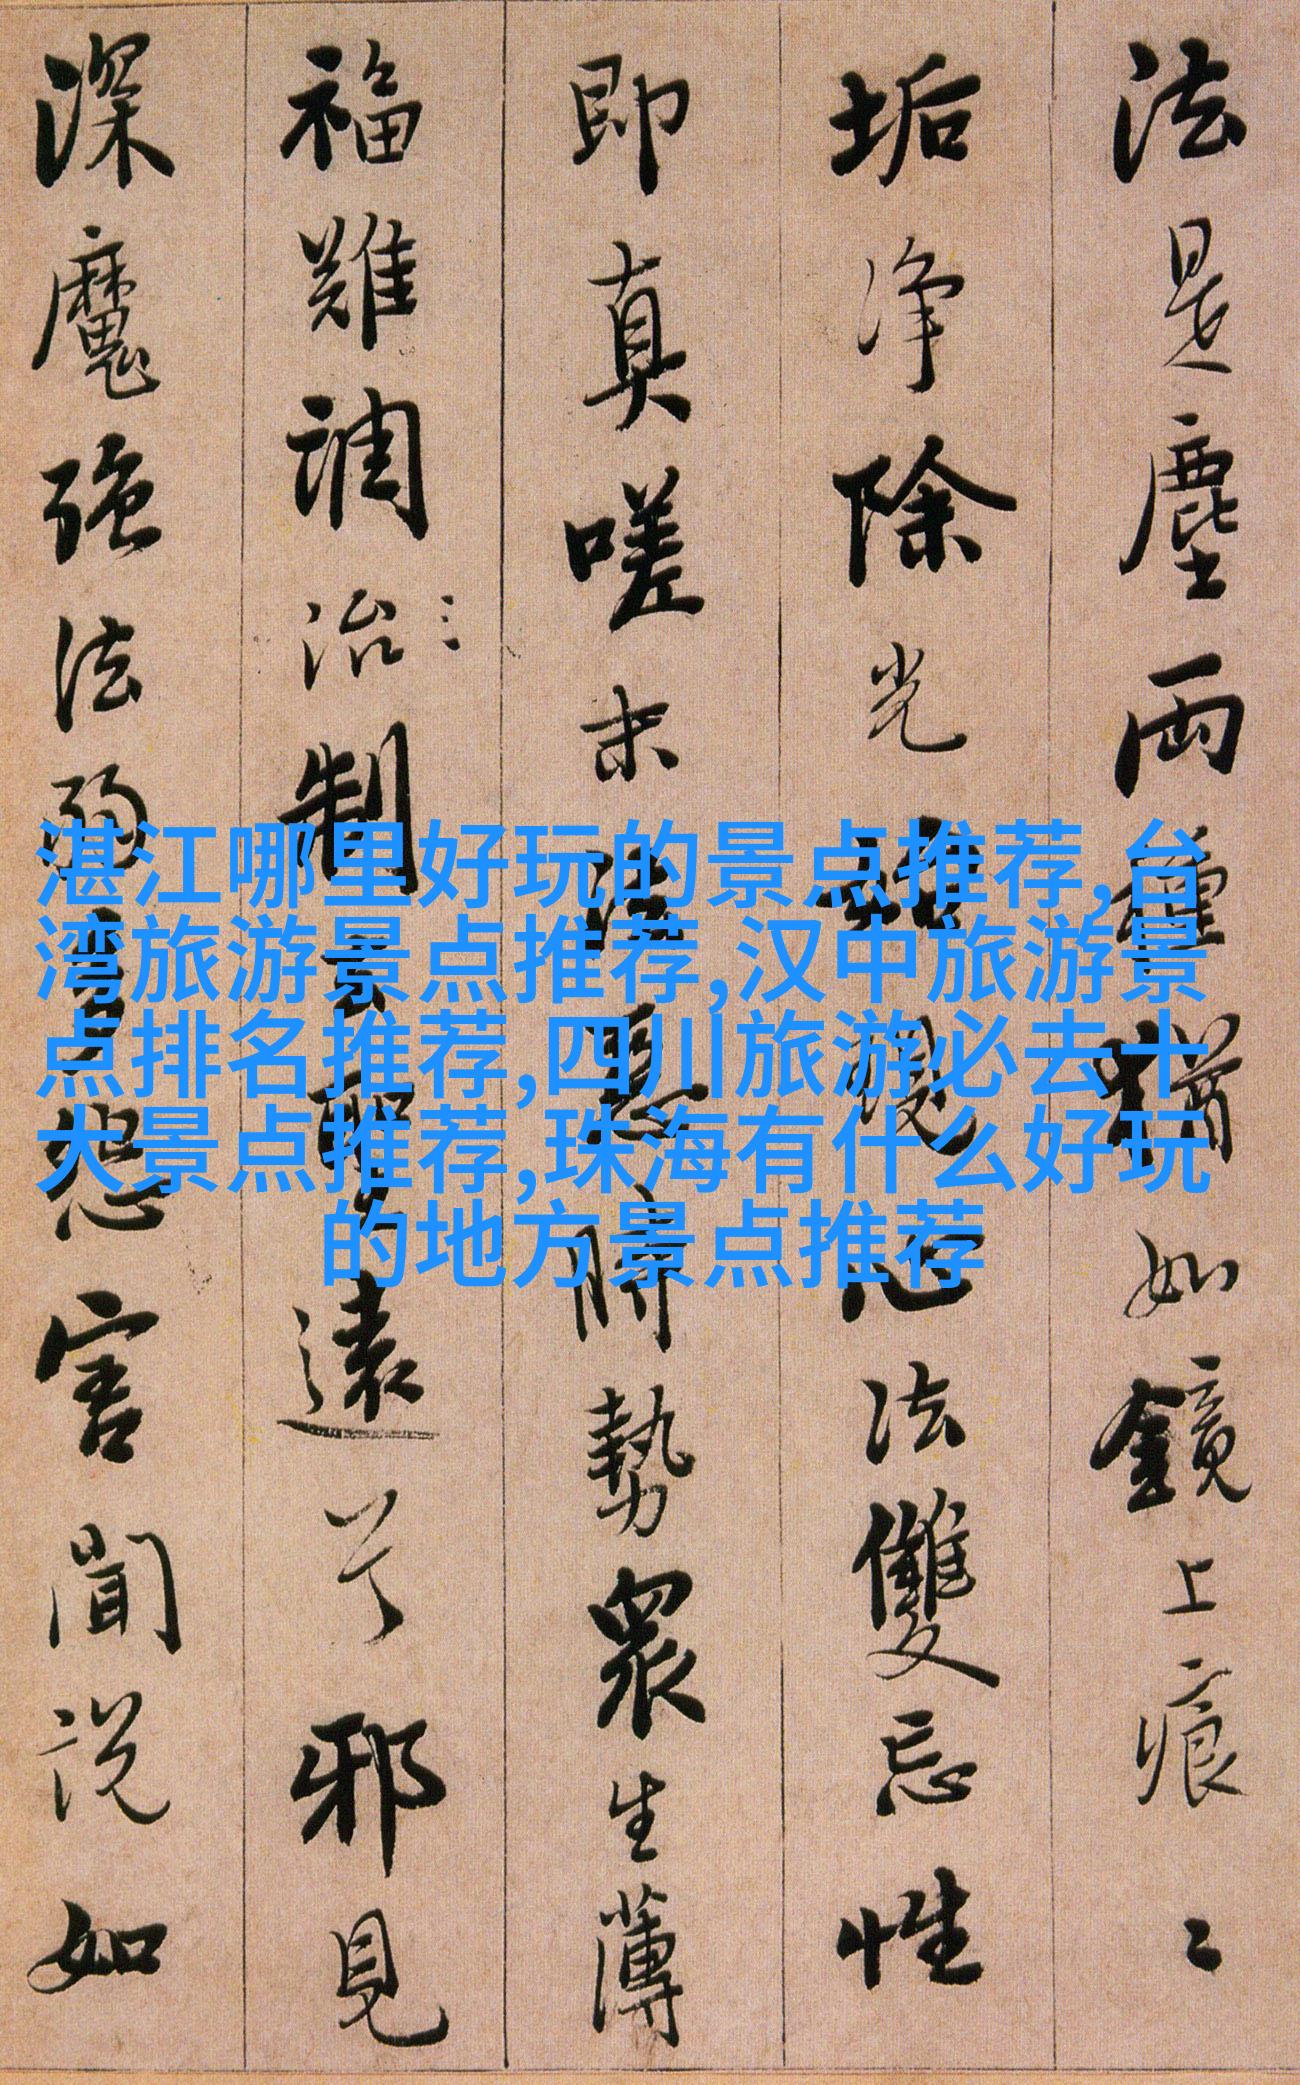 法是塵兩種猶如鏡上痕〻
垢淨除光始現心法雙忘性
即真嗟末法惡時勢衆生薄
福難調治制去聖遠兮邪見
深魔強法弱多怨害聞說如
湛江哪里好玩的景点推荐,台
湾旅游景点推荐,汉中旅游景
点排名推荐,四川旅游必去十
大景点推荐,珠海有什么好玩
的地方景点推荐